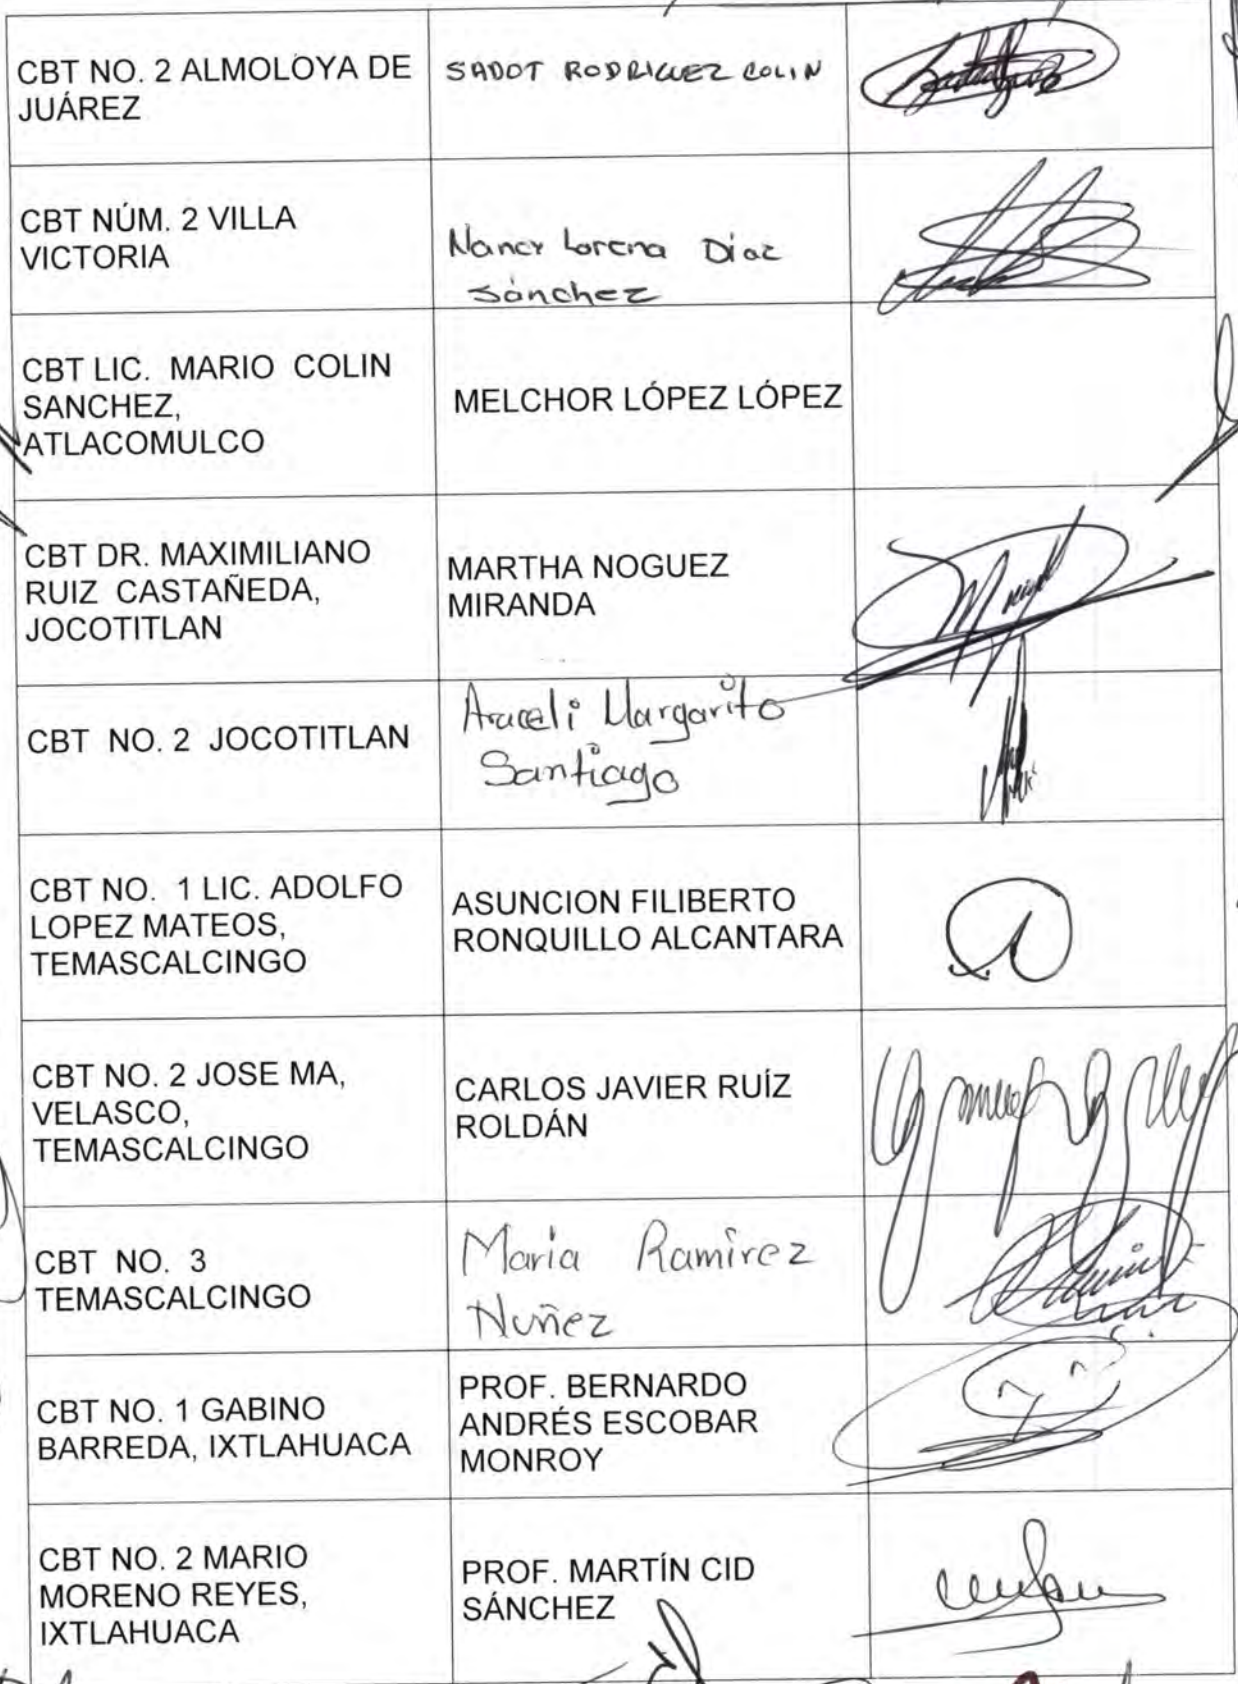 CBT NO. 2 ALMOLOYA DE
JUÁREZ
SADOT RODRIGUEZ COLIN
CBT NÚM. 2 VILLA
VICTORIA
Nancy Lorena Díaz
Sánchez
CBT LIC. MARIO COLIN
SANCHEZ,
ATLACOMULCO
MELCHOR LÓPEZ LÓPEZ
CBT DR. MAXIMILIANO
RUIZ CASTAÑEDA,
JOCOTITLAN
MARTHA NOGUEZ
MIRANDA
CBT NO. 2 JOCOTITLAN
Araceli Margarito
Santiago
CBT NO. 1 LIC. ADOLFO
LOPEZ MATEOS,
TEMASCALCINGO
ASUNCION FILIBERTO
RONQUILLO ALCANTARA
CBT NO. 2 JOSE MA,
VELASCO,
TEMASCALCINGO
CARLOS JAVIER RUÍZ
ROLDÁN
CBT NO. 3
TEMASCALCINGO
María Ramírez
Nuñez
CBT NO. 1 GABINO
BARREDA, IXTLAHUACA
PROF. BERNARDO
ANDRÉS ESCOBAR
MONROY
CBT NO. 2 MARIO
MORENO REYES,
IXTLAHUACA
PROF. MARTÍN CID
SÁNCHEZ